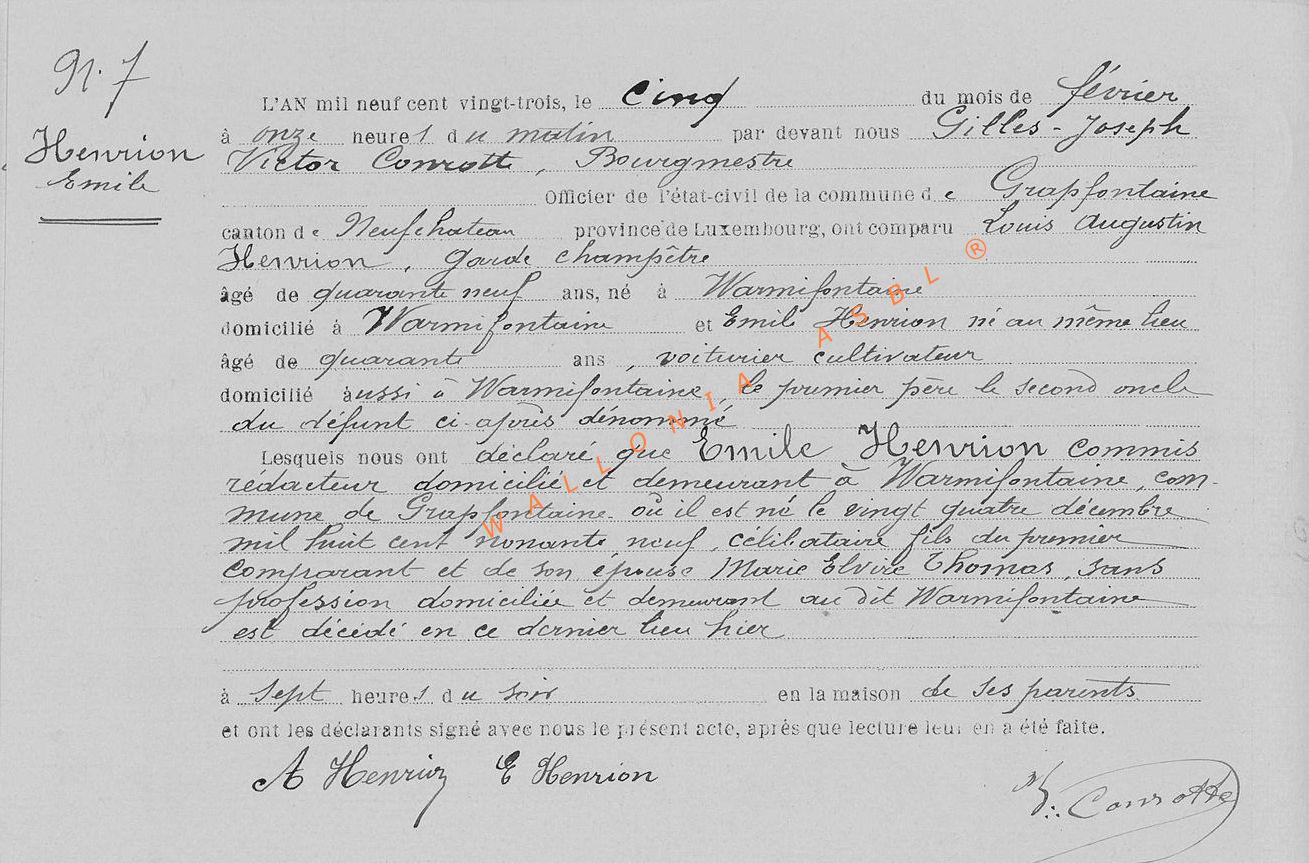 N. 7
Henrion
Emile
L'AN mil neuf cent vingt-trois, le cinq du mois de février
à onze heures du matin par devant nous Gilles-Joseph
Victor Conrotte, Bourgmestre
Officier de l'état-civil de la commune de Grapfontaine
canton de Neufchateau province de Luxembourg, ont comparu Louis Augustin
Henrion, garde champêtre
âgé de quarante neuf ans, né à Warmifontaine
domicilié à Warmifontaine et Emile Henrion né au même lieu
âgé de quarante ans, voiturier cultivateur
domicilié aussi à Warmifontaine, le premier père le second oncle
du défunt ci-après dénommé
Lesquels nous ont déclaré que Emile Henrion commis
rédacteur domicilié et demeurant à Warmifontaine, com-
mune de Grapfontaine où il est né le vingt quatre décembre
mil huit cent nonante neuf, célibataire fils du premier
comparant et de son épouse Marie Elvire Thomas, sans
profession domiciliée et demeurant au dit Warmifontaine
est décédé en ce dernier lieu hier
à sept heures du soir en la maison de ses parents
et ont les déclarants signé avec nous le présent acte, aprés que lecture leur en a été faite.
A Henrion E Henrion
V. Conrotte
WALLONIA ASBL ®